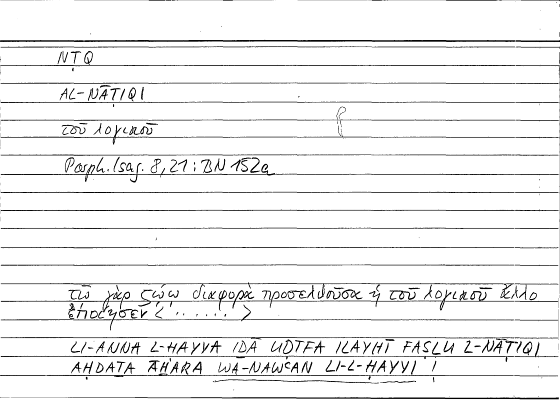 NṬQ
AL-NĀṬIQI
τοῦ λογικοῦ
Porph. Isag. 8,21 : BN 152a
τῷ γὰρ ζῴῳ διαφορὰ προσελθοῦσα ἡ τοῦ λογικοῦ ἄλλο
ἐποίησεν < ...... >
LI-ANNA L-ḤAYYA IḎĀ UḌĪFA ILAYHĪ FAṢLU L-NĀṬIQI
AḤDAṮA ĀḪARA WA-NAWʿAN LI-L-ḤAYYI